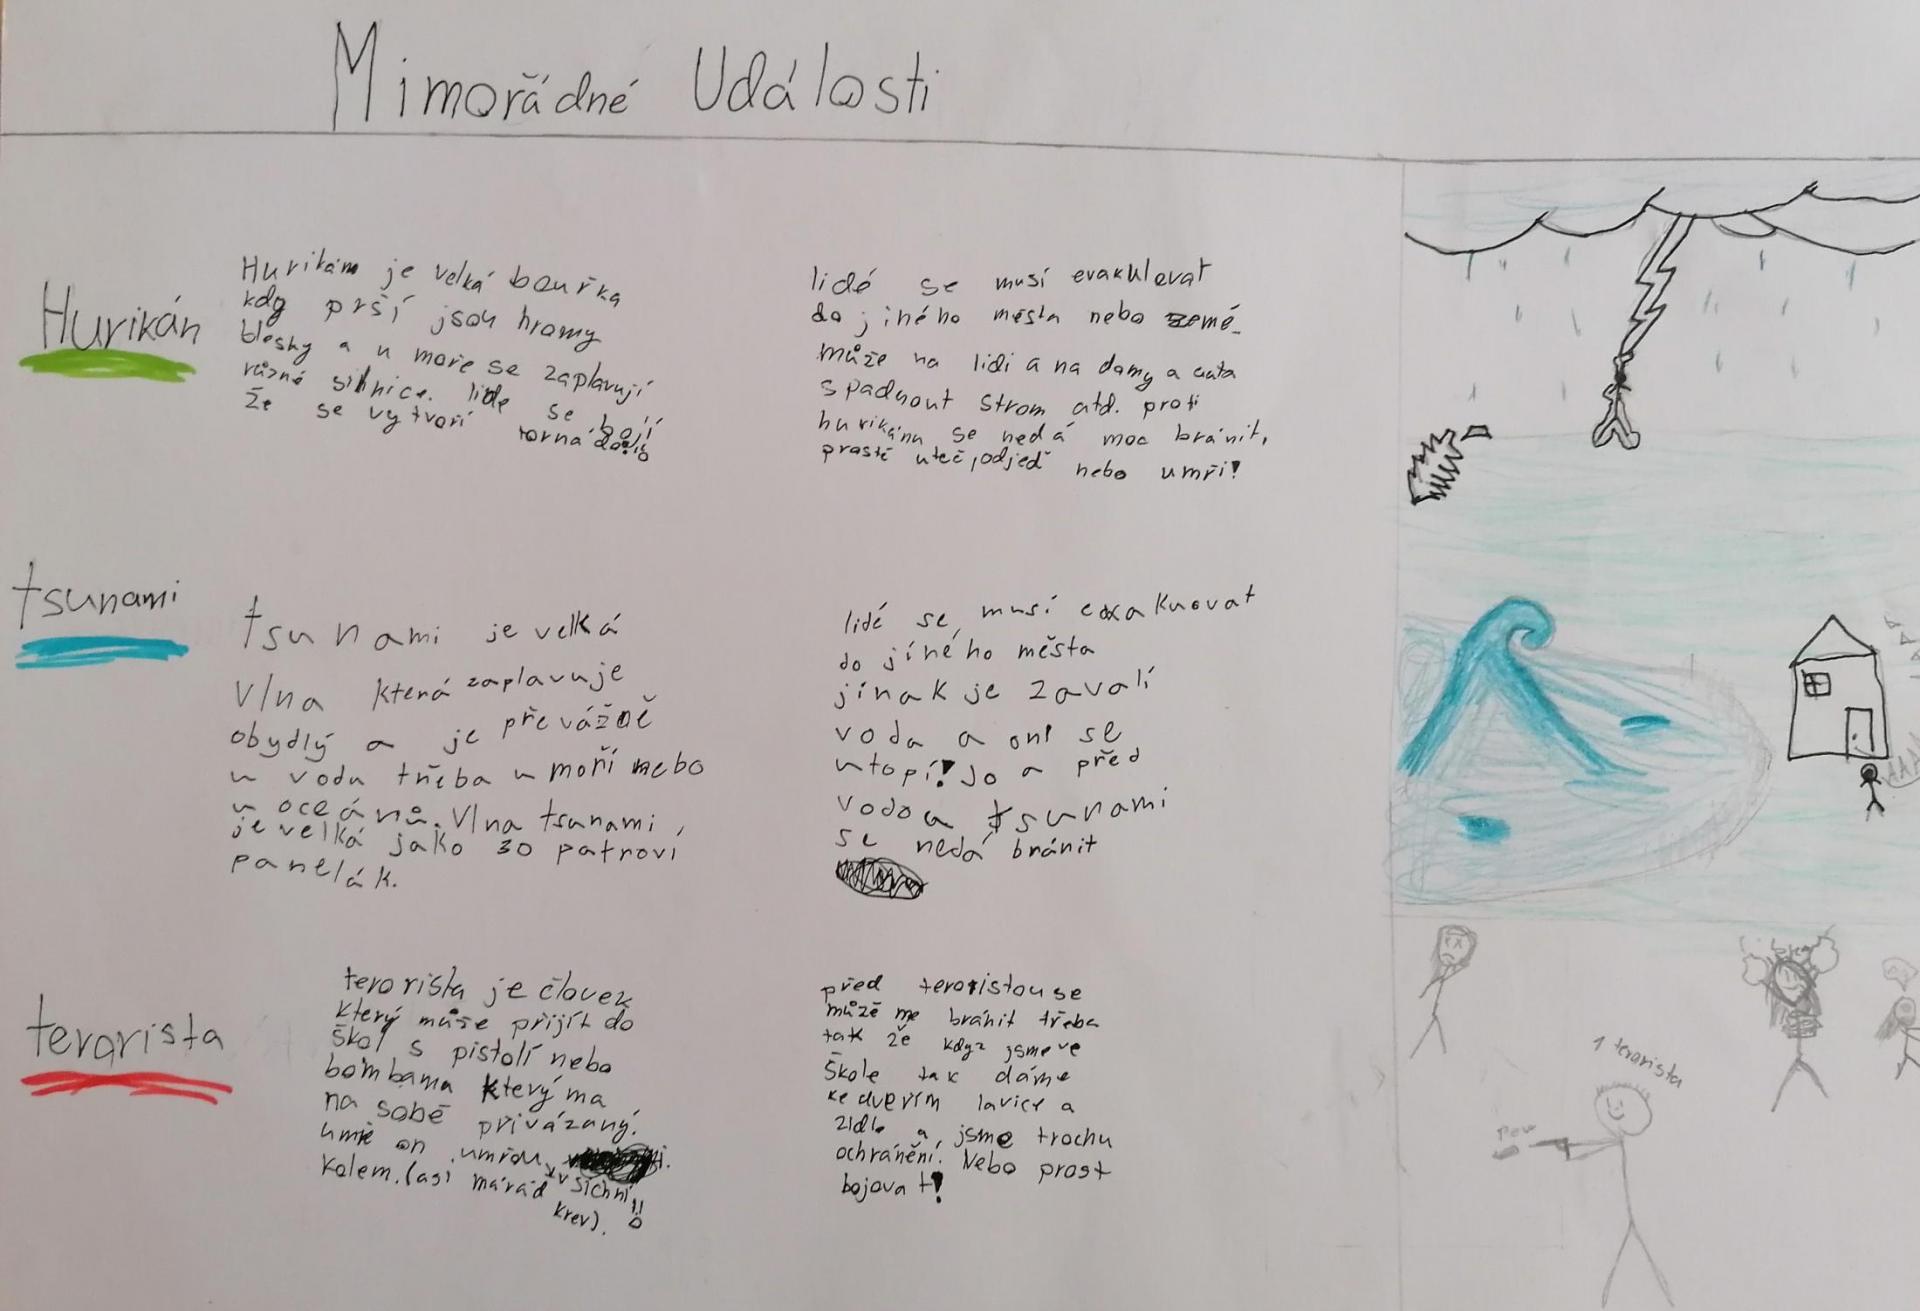 Mimořádné Události
Hurikán
Hurikám je velká bouřka
kdy prší jsou hromy
blesky a u moře se zaplavují
různé silnice. lide se bojí
že se vytvoří tornádo!!
lidé se musí evakulovat
do jiného města nebo země.
může na lidi a na domy a auta
spadnout strom atd. proti
hurikánu se nedá moc bránit,
prostě uteč, odjeď nebo umři!
tsunami
tsunami je velká
vlna která zaplavuje
obydlý a je převážně
u vodu třeba u moří nebo
u oceánů. Vlna tsunami,
je velká jako 30 patroví
panelák.
lidé se musí evakuovat
do jíného města
jinak je zavalí
voda a oni se
utopí! Jo a před
vodoa tsunami
se nedá bránit
terorista
terorista je človek
který může přijít do
škol s pistolí nebo
bombama který ma
na sobě přivázaný.
umře on umřou všichni!!
kolem. (asi márád krev).
před teroristou se
můžě me bránit třeba
tak že když jsme ve
škole tak dáme
ke dveřím lavice a
židle a jsme trochu
ochránění. Nebo prost
bojovat!
1 terorista
pow